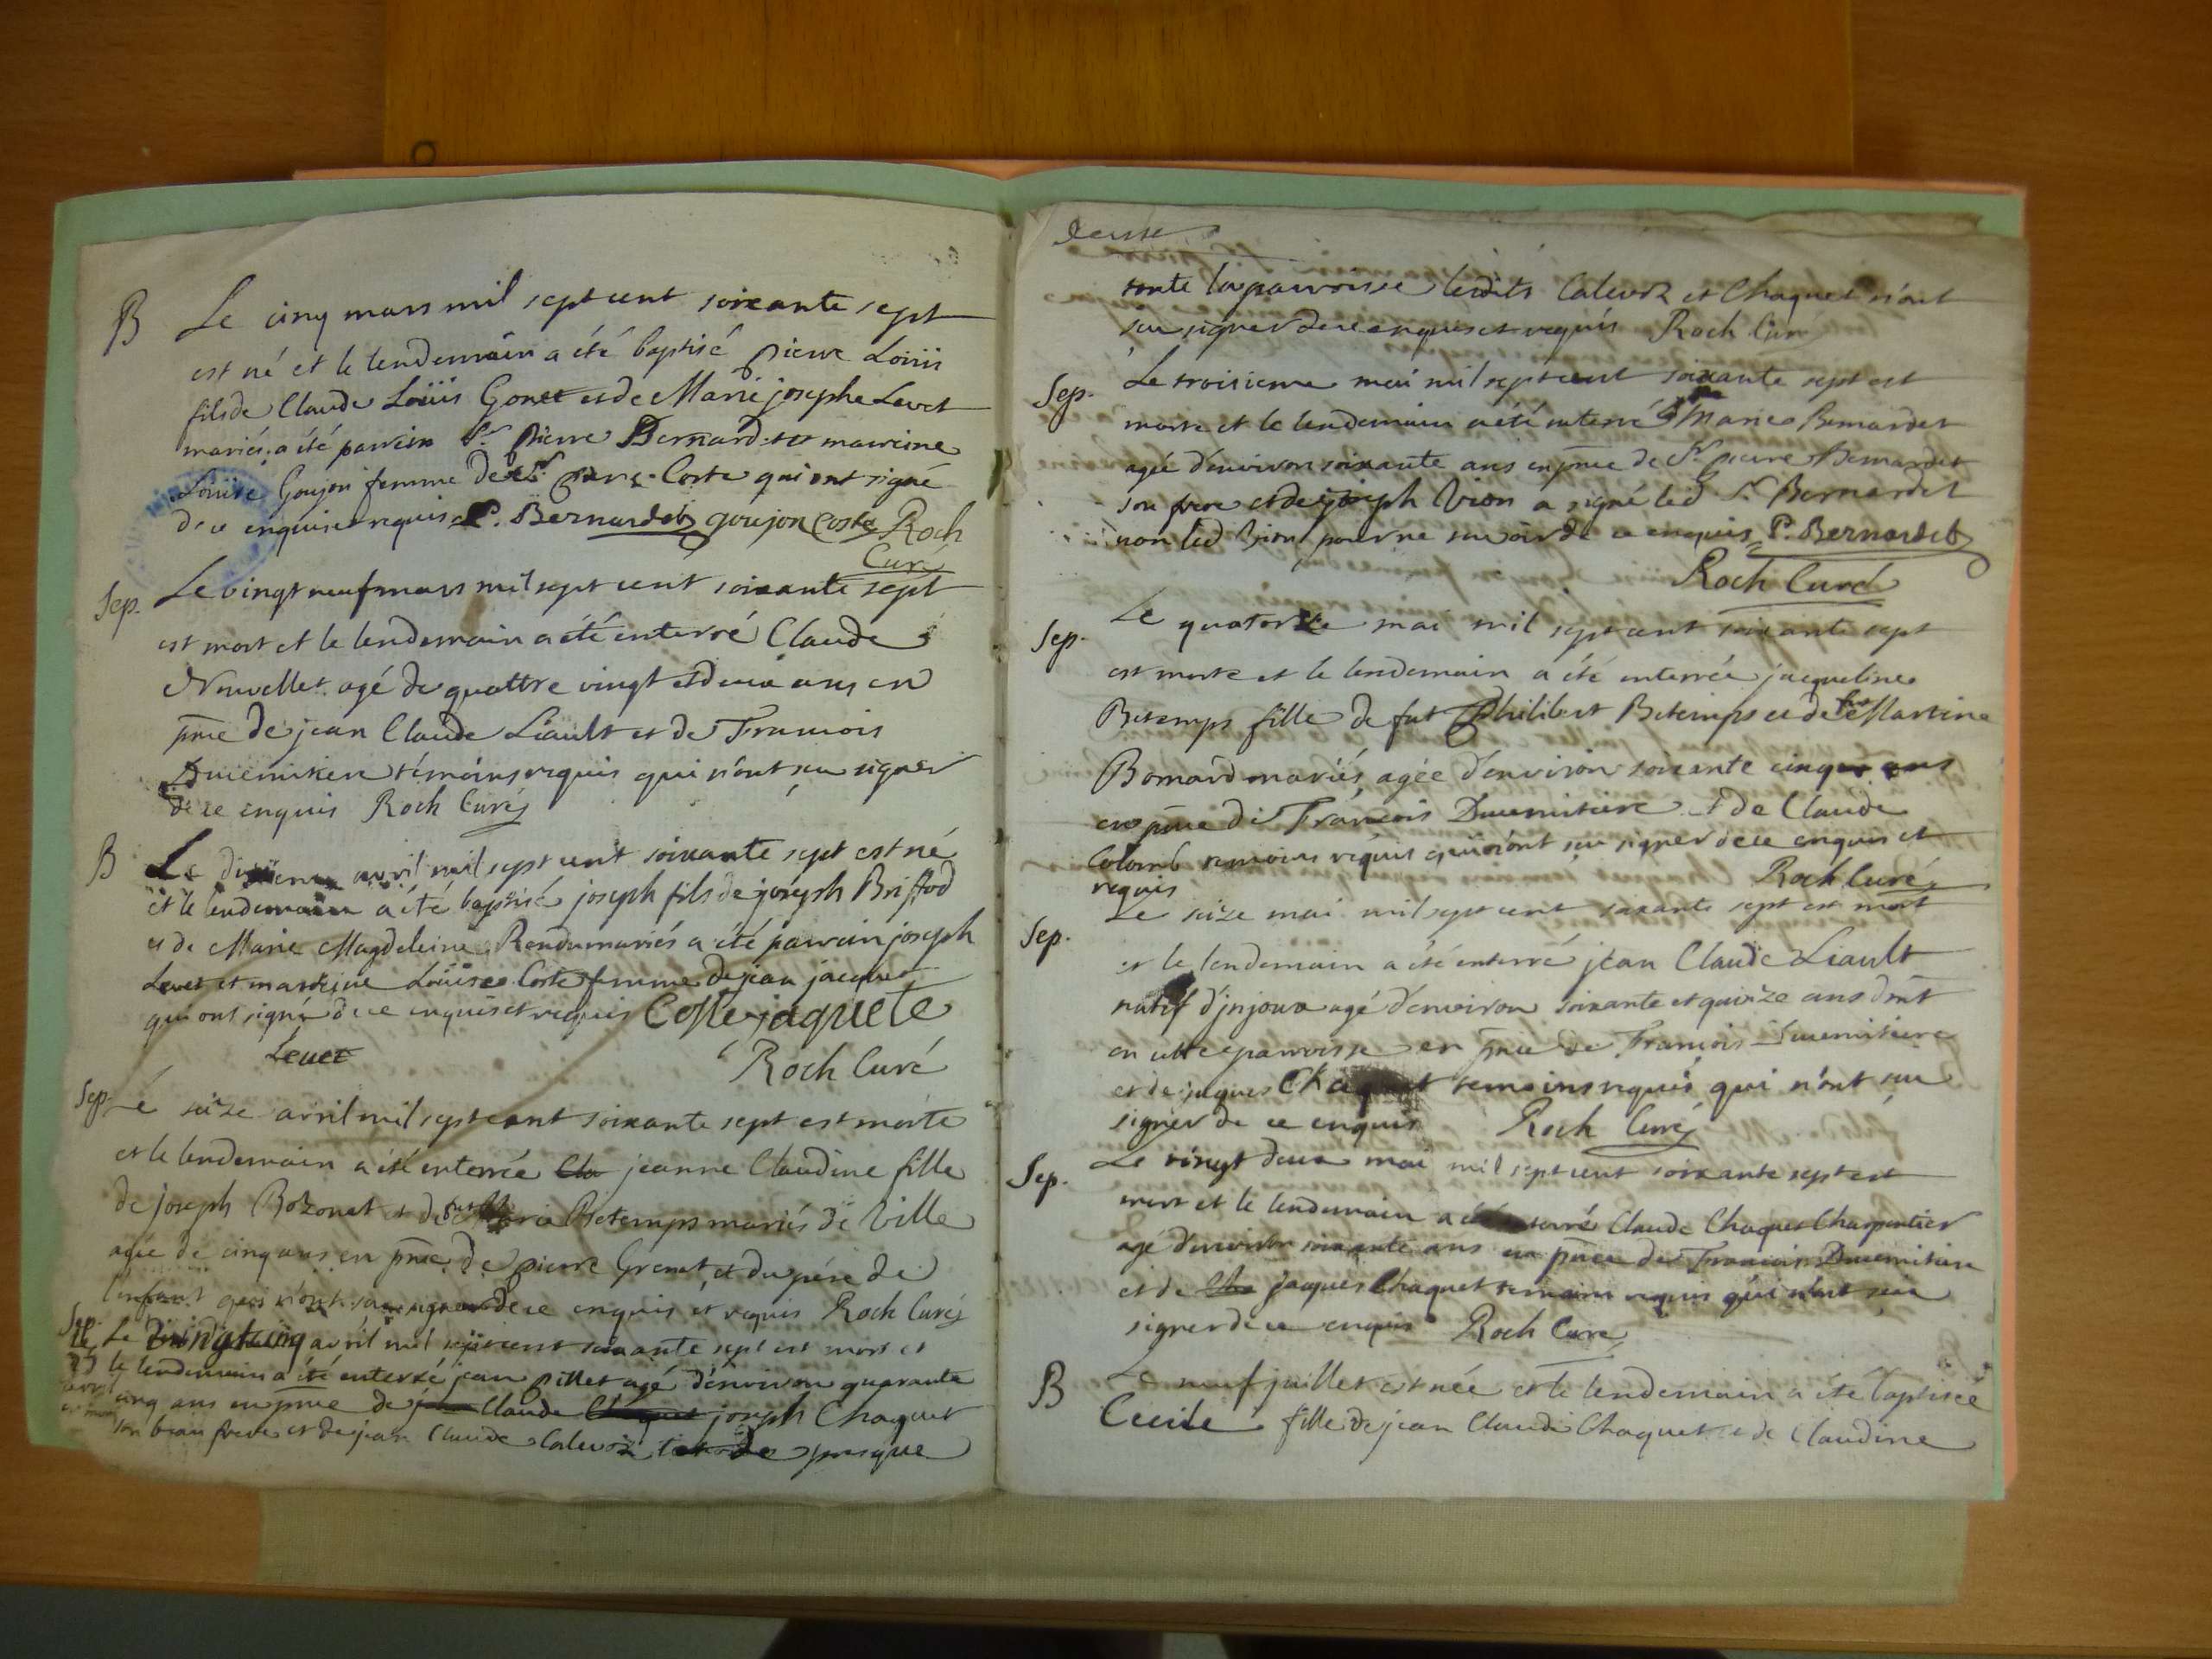 B Le cinq mars mil sept cent soixante sept
est né et le lendemain a été baptisé pierre Loüis
fils de Claude Loüis Gonet et de Marie josephe Levet
mariés, a été parrein Sr. pierre Bernardet et marreine
Loüise Goujon femme de Sr. Coste qui ont signé
de ce enquis et requis P. Bernardet goujon Coste Roch
Curé
Sep. Le vingt neuf mars mil sept cent soixante sept
est mort et le lendemain a été enterré Claude
Nouvellet agé de quattre vingt et deux ans en
pnce de jean Claude Liault et de Francois
témoins requis qui n'ont su signer
de ce enquis Roch Curé
B Le avril mil sept cent soixante sept est né
et le lendemain a été baptisé joseph fils de joseph Briffod
et de Marie Magdeleine Rendu mariés a été parrain joseph
Levet et marreine Loüise Coste femme de jean jacque
qui ont signé de ce enquis et requis Coste jaquete
Levet Roch Curé
Sep. Le seize avril mil sept cent soixante sept est morte
et le lendemain a été enterrée Cla jeanne Claudine fille
de joseph Bozonet et de Marie Betemps mariés de Ville
agée de cinq ans en pnce de pierre Grenat et du pére de
l'enfant qui n'ont su signer de ce enquis et requis Roch Curé
Sep. Le vingt cinq avril mil sept cent soixante sept est mort et
le lendemain a été enterré jean pillet agé d'environ quarante
cinq ans en pnce de Claude joseph Chaquet
son beau frere et de jean Claude Calevoz presque
toute la paroisse lesdits Calevoz et Chaquet n'ont
su signer de ce enquis et requis Roch Curé
Sep. Le troisieme mai mil sept cent soixante sept est
morte et le lendemain a été enterré Marie Bernardet
agée d'environ soixante ans en pnce de Sr. pierre Bernardet
son frere et de joseph Vion a signé led Sr. Bernardet
non led Vion pour ne savoir de ce enquis P. Bernardet
Roch Curé
Sep. Le quatorze mai mil sept cent soixante sept
est morte et le lendemain a été enterrée jacqueline
Betemps fille de fut Philibert Betemps et de Martine
Bornard mariés, agée d'environ soixante cinq ans
en pnce de François et de Claude
Colomb temoins requis qui n'ont su signer de ce enquis et
requis Roch Curé
Sep. Le seize mai mil sept cent soixante sept est mort
et le lendemain a été enterré jean Claude Liault
natif d'jnjoux agé d'environ soixante et quinze ans
en cette parroisse en pnce de Francois
et de jaques Chaquet temoins requis qui n'ont su
signer de ce enquis Roch Curé
Sep. Le vingt deux mai mil sept cent soixante sept est
mort et le lendemain a été enterré Claude Chaquet Charpentier
agé d'environ soixante ans en pnce de Francois
et de Cla jacques Chaquet temoins requis qui n'ont su
signer de ce enquis Roch Curé
B Le neuf juillet est née et le lendemain a été baptisée
Cecile fille de jean Claude Chaquet et de Claudine